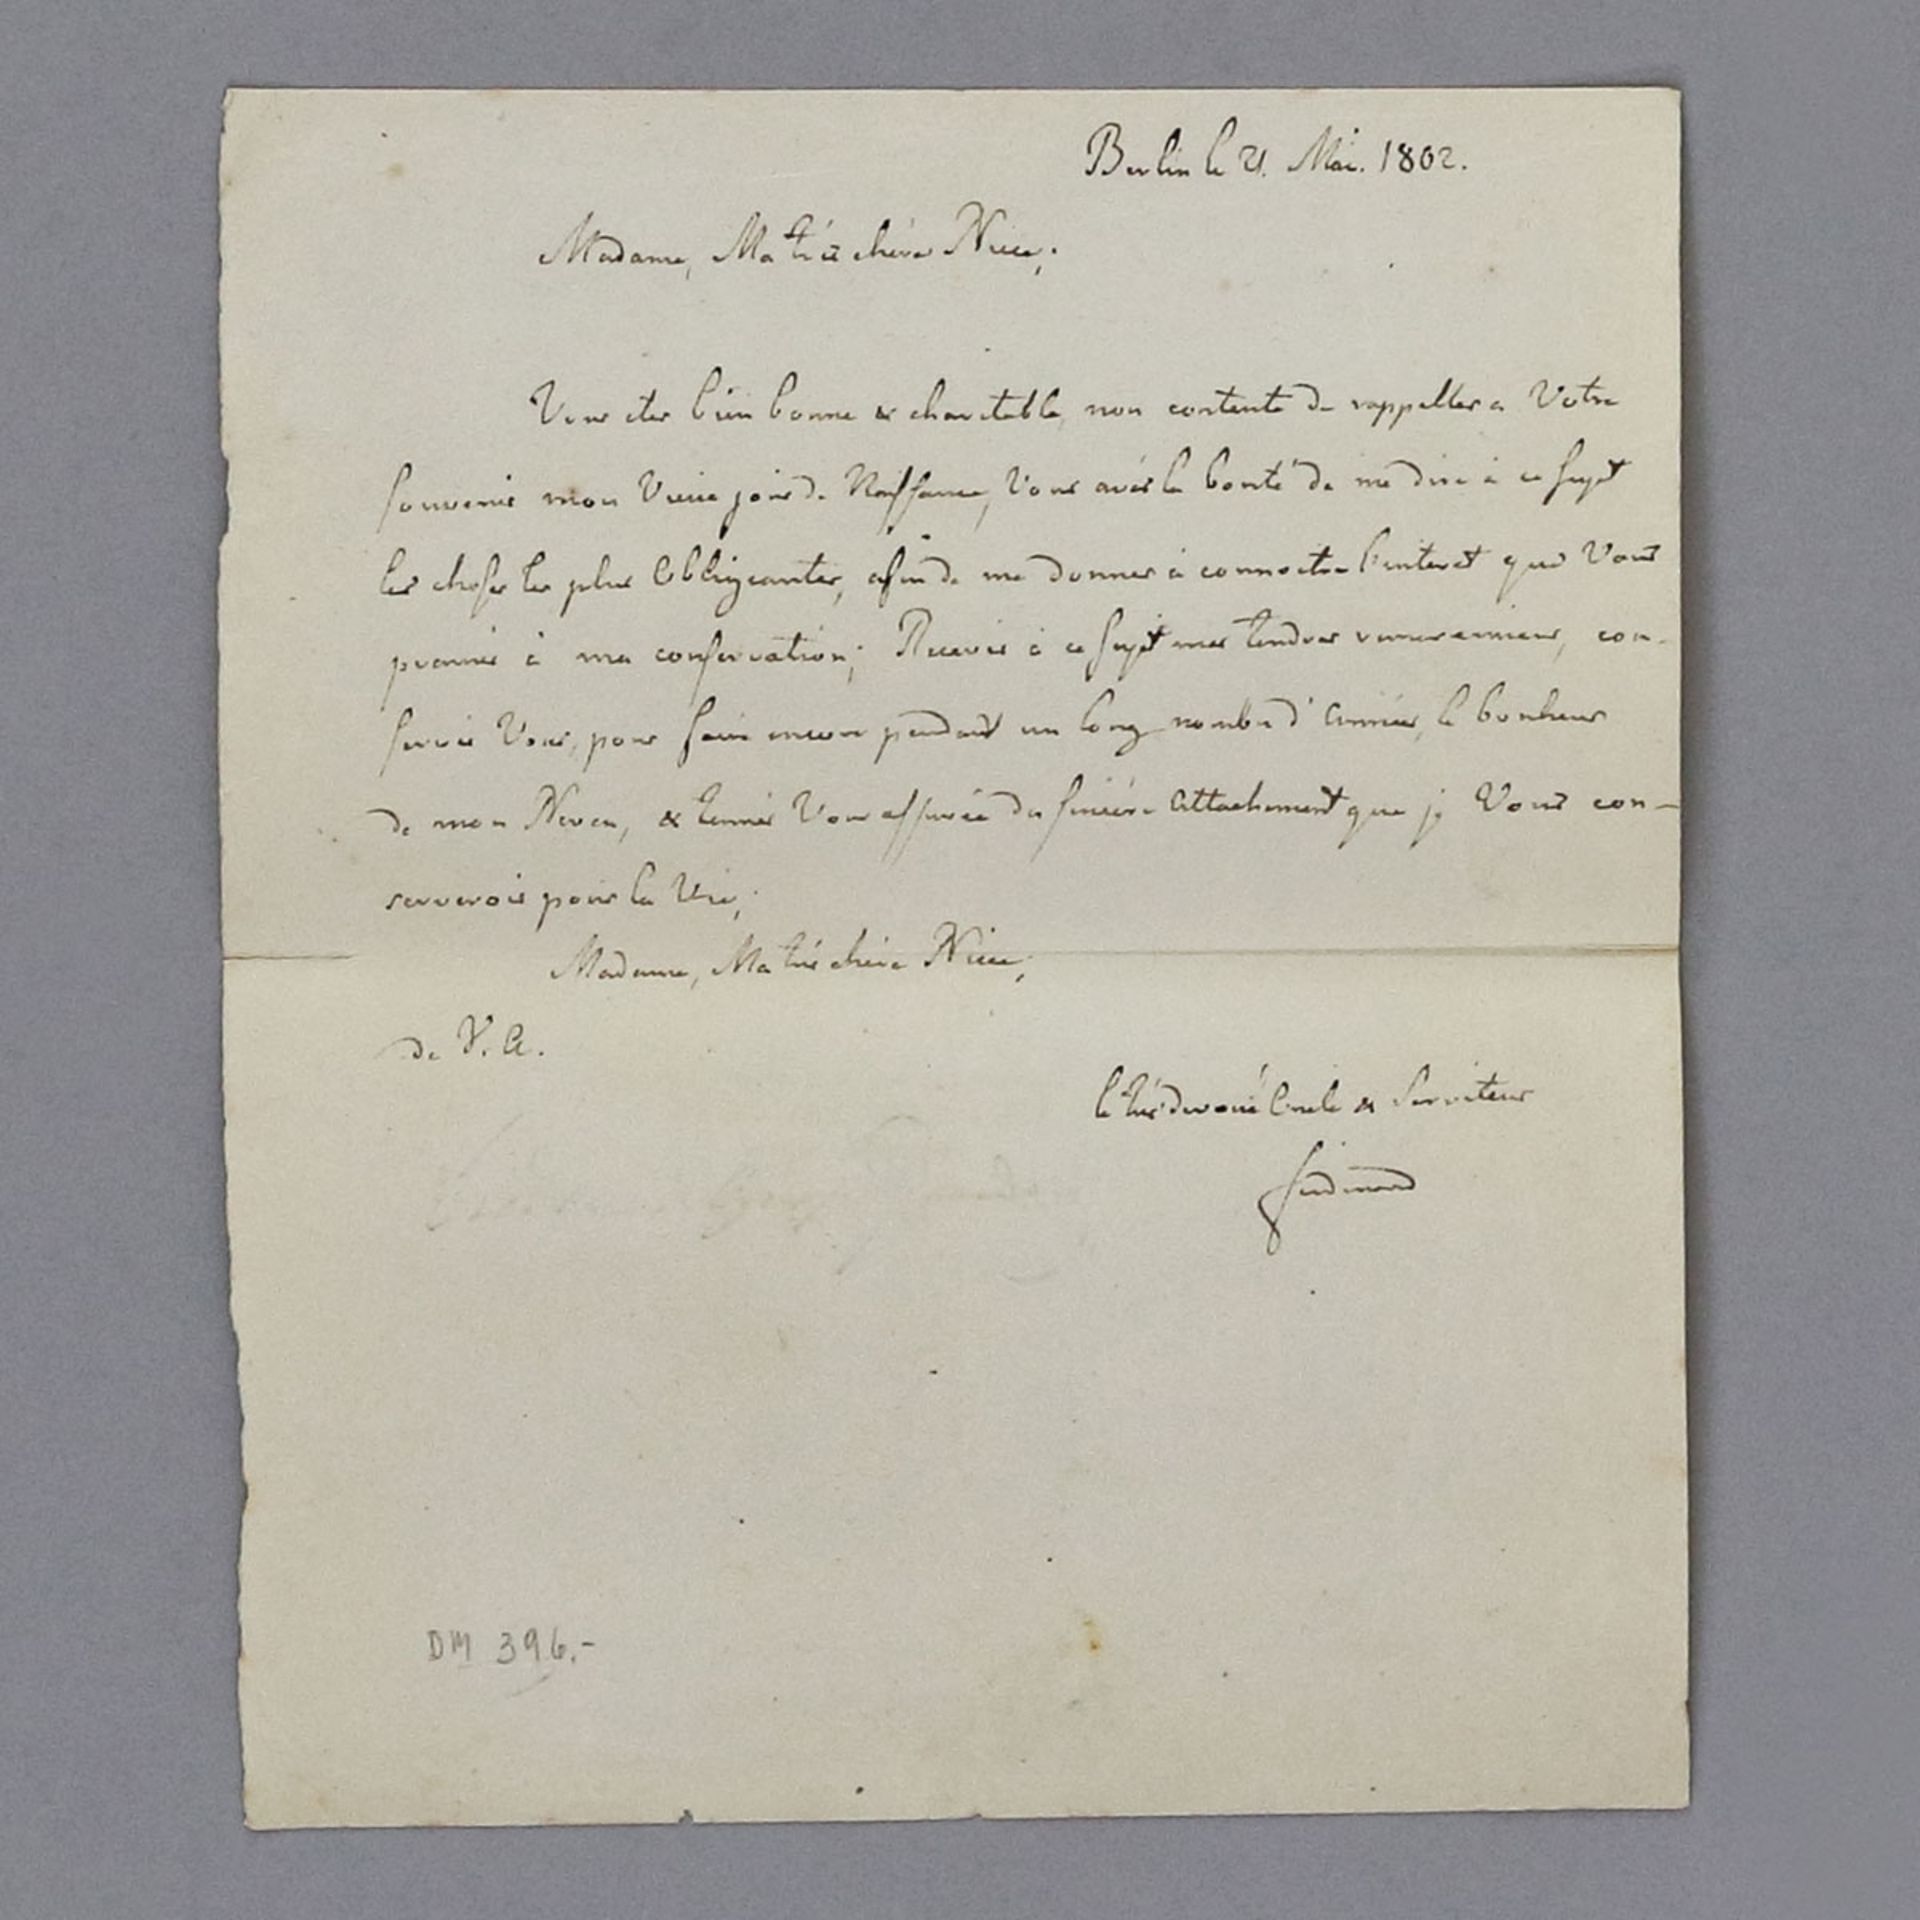 Berlin le 21. Mai. 1802.
Madame, Ma très chère Niece;
Vous etes bien bonne & charitable, non contente de rappeller a Votre
souvenir mon Vieux jour de Naissance, Vous avés la bonté de me dire à ce sujet
les choses les plus Obligeantes, afin de me donner à connoitre l'interet que Vous
prennés à ma conservation; Recevés à ce sujet mes tendres remerciemens, con-
servés Vous, pour faire encore pendant un long nombre d'Années, le bonheur
de mon Neveu, & tennés Vous assurée du sincère Attachement que je Vous con-
serverois pour la Vie;
Madame, Ma très chère Niece,
de V. A.
le très devoué Oncle & Serviteur
Ferdinand
DM 396.-